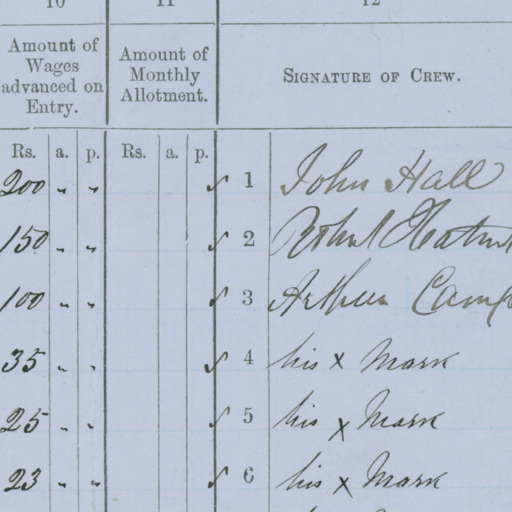 10 11 12
Amount of
Wages
advanced on
Entry.
Amount of
Monthly
Allotment.
SIGNATURE OF CREW.
Rs. a. p. Rs. a. p.
200 " " 1 John Hall
150 " " 2
100 " " 3 Arthur
35 " " 4 his x Mark
25 " " 5 his x Mark
23 " " 6 his x Mark